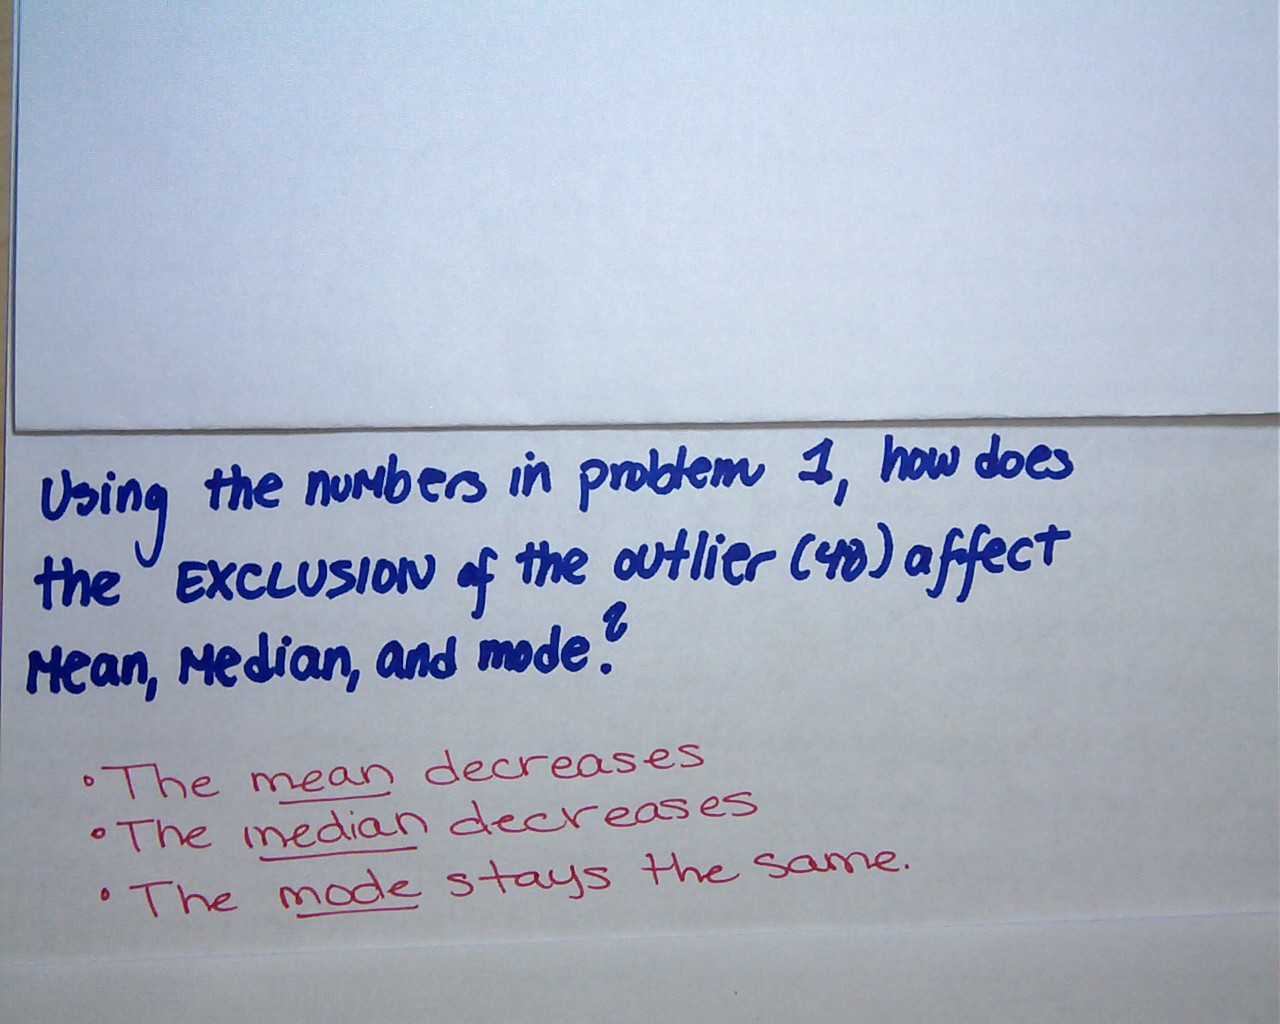 Using the numbers in problem 1, how does
the EXCLUSION of the outlier (40) affect
Mean, Median, and mode?
• The mean decreases
• The median decreases
• The mode stays the same.